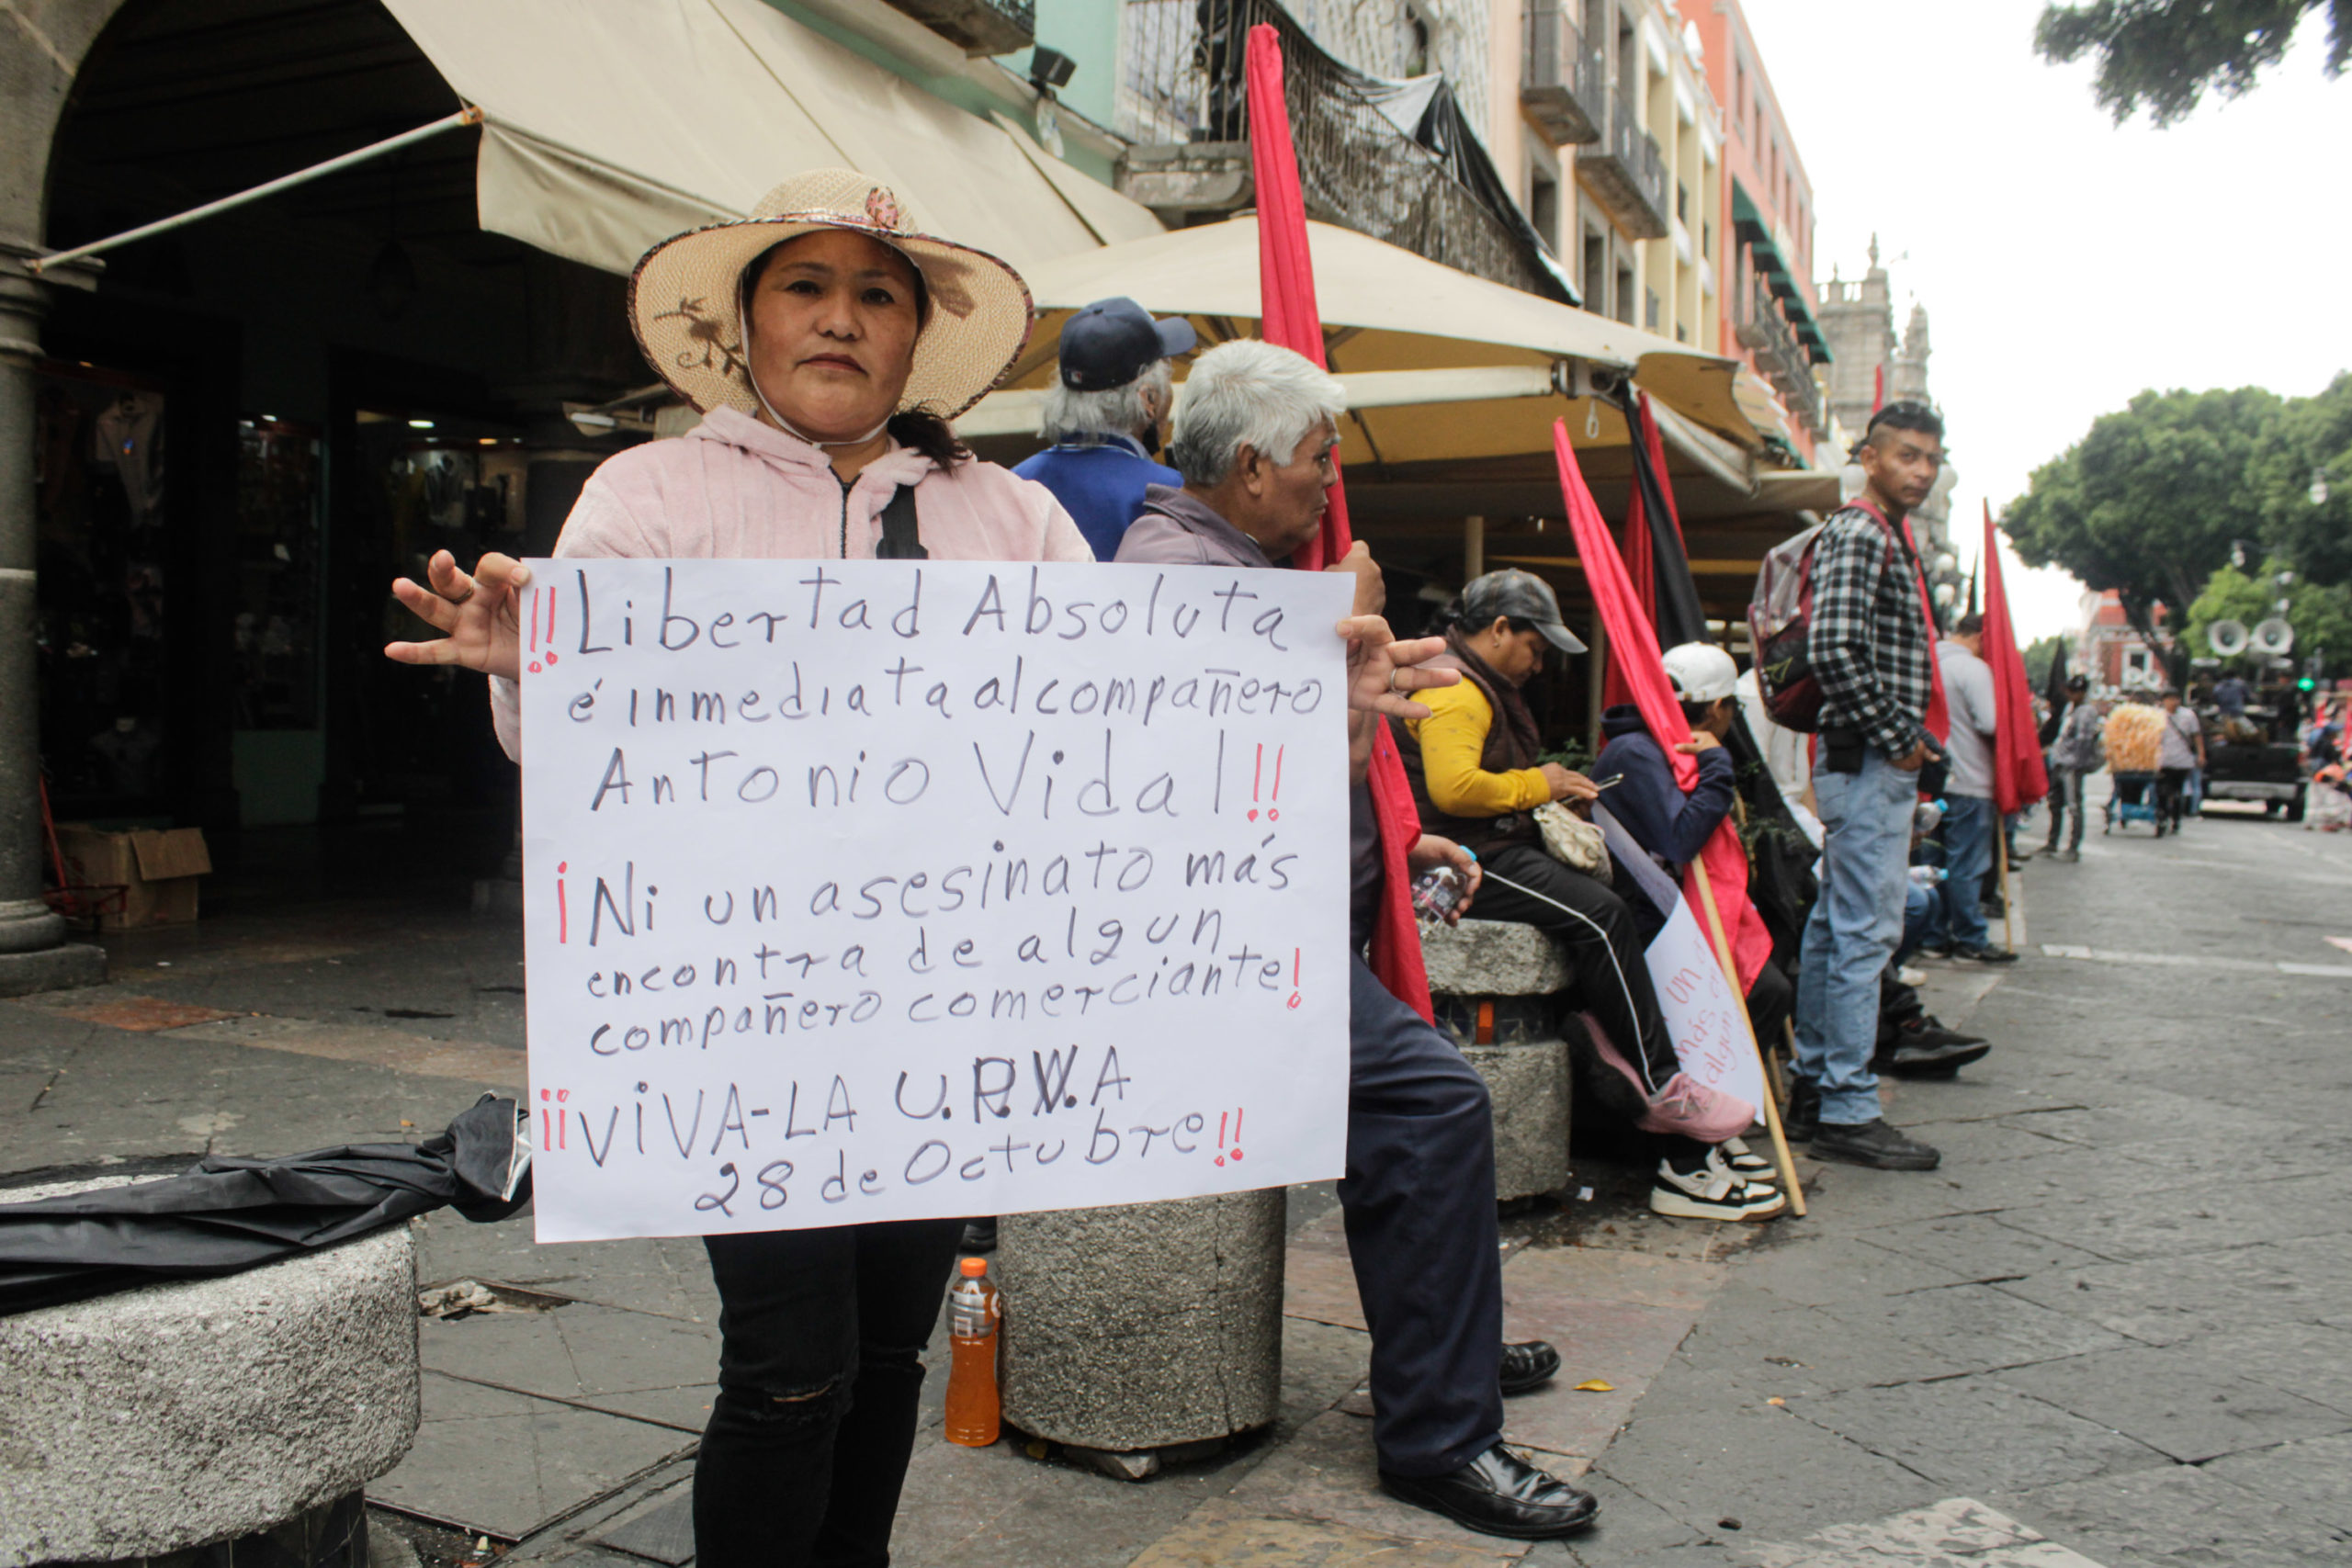 !!Libertad Absoluta
é inmediata al compañero
Antonio Vidal!!
¡Ni un asesinato más
encontra de algun
compañero comerciante!
¡¡ViVA-LA U.P.V.A
28 de Octubre!!
un a
más en
algun